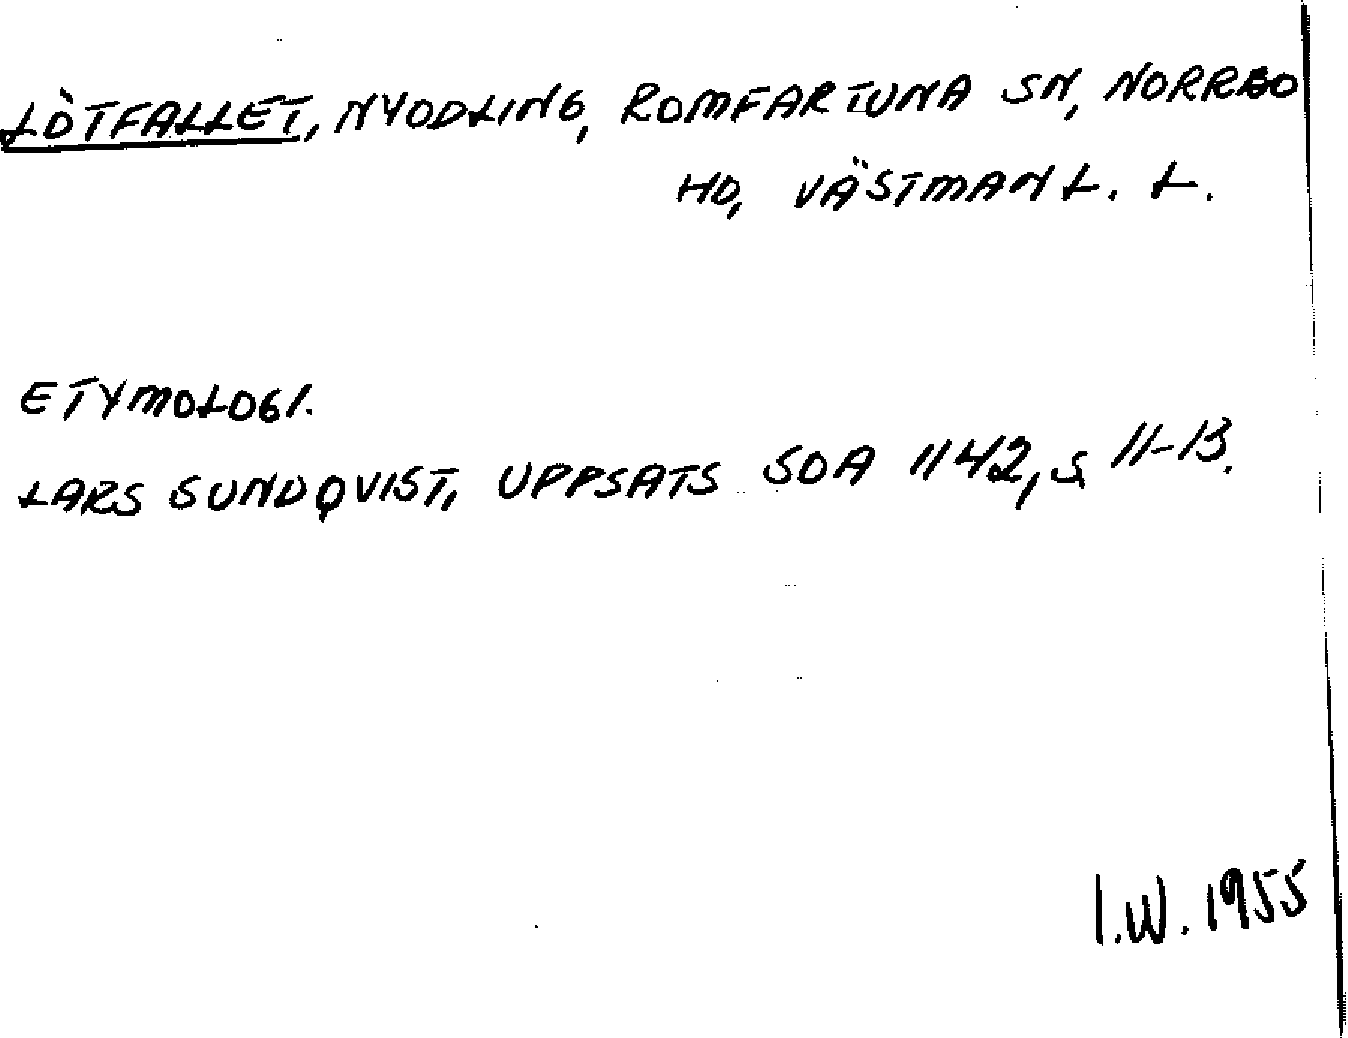 LÖTFALLET, NYODLING, ROMFARTUNA SN, NORRBO
HD, VÄSTMANL. L.
ETYMOLOGI.
LARS SUNDQVIST, UPPSATS SOA 1142, S 11-13.
I.W. 1955